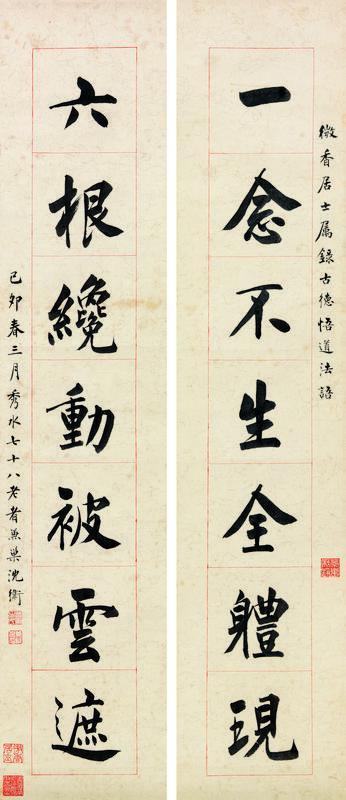 微香居士属録古德悟道法語
一念不生全軆現
六根纔動被雲遮
己卯春三月秀水七十八老者兼巢沈衛